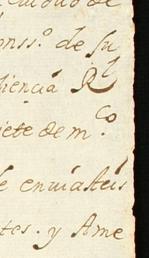 onss.º de su
diencia Rˡ
siete de m.ᶜᵒ
e enviasteis
tes. y Ame